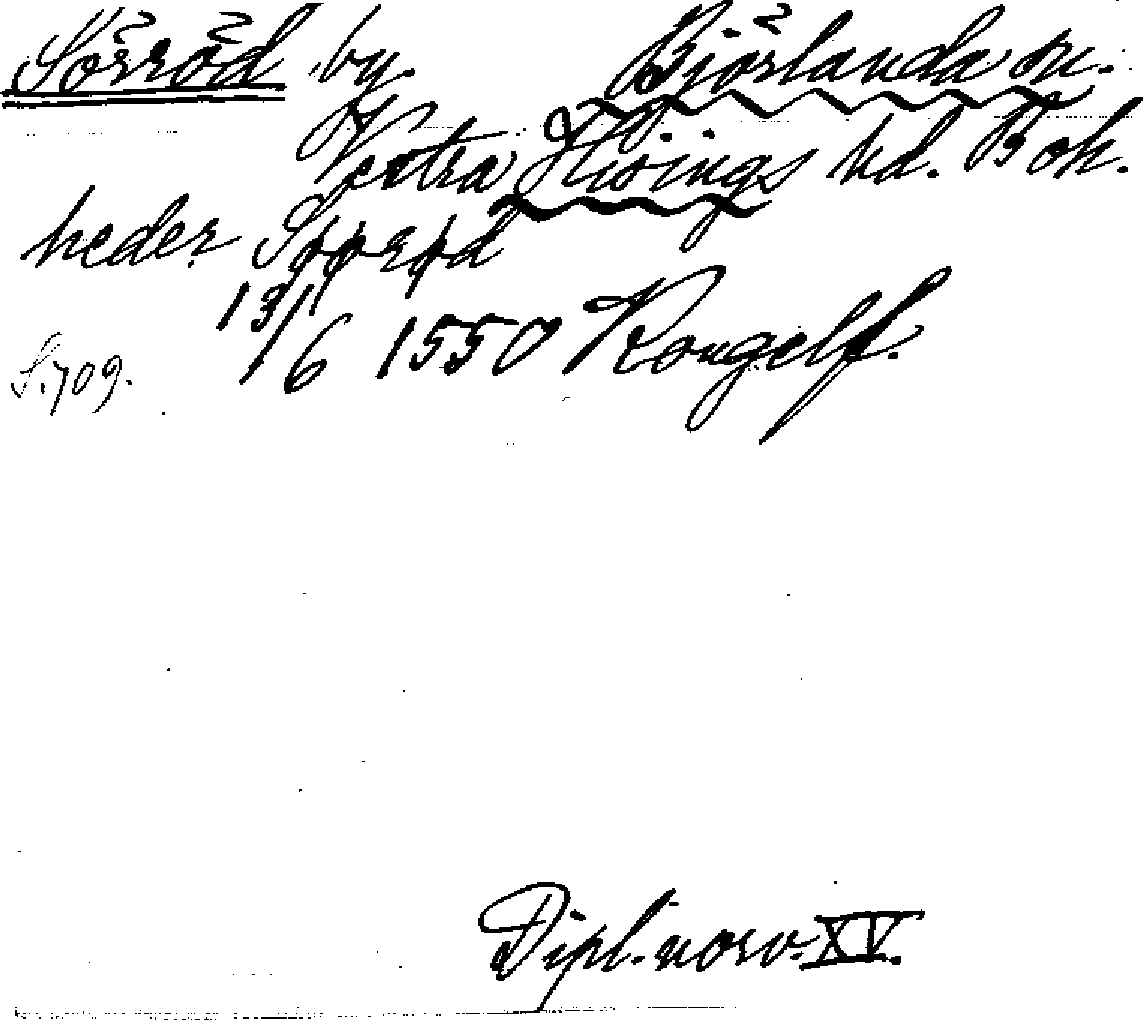 Sörröd by. Björlanda sn.
Vestra Hisings hd. Boh.
heder Søørød
13/6 1550 Kongelf.
S. 709.
Dipl. norv. XV.